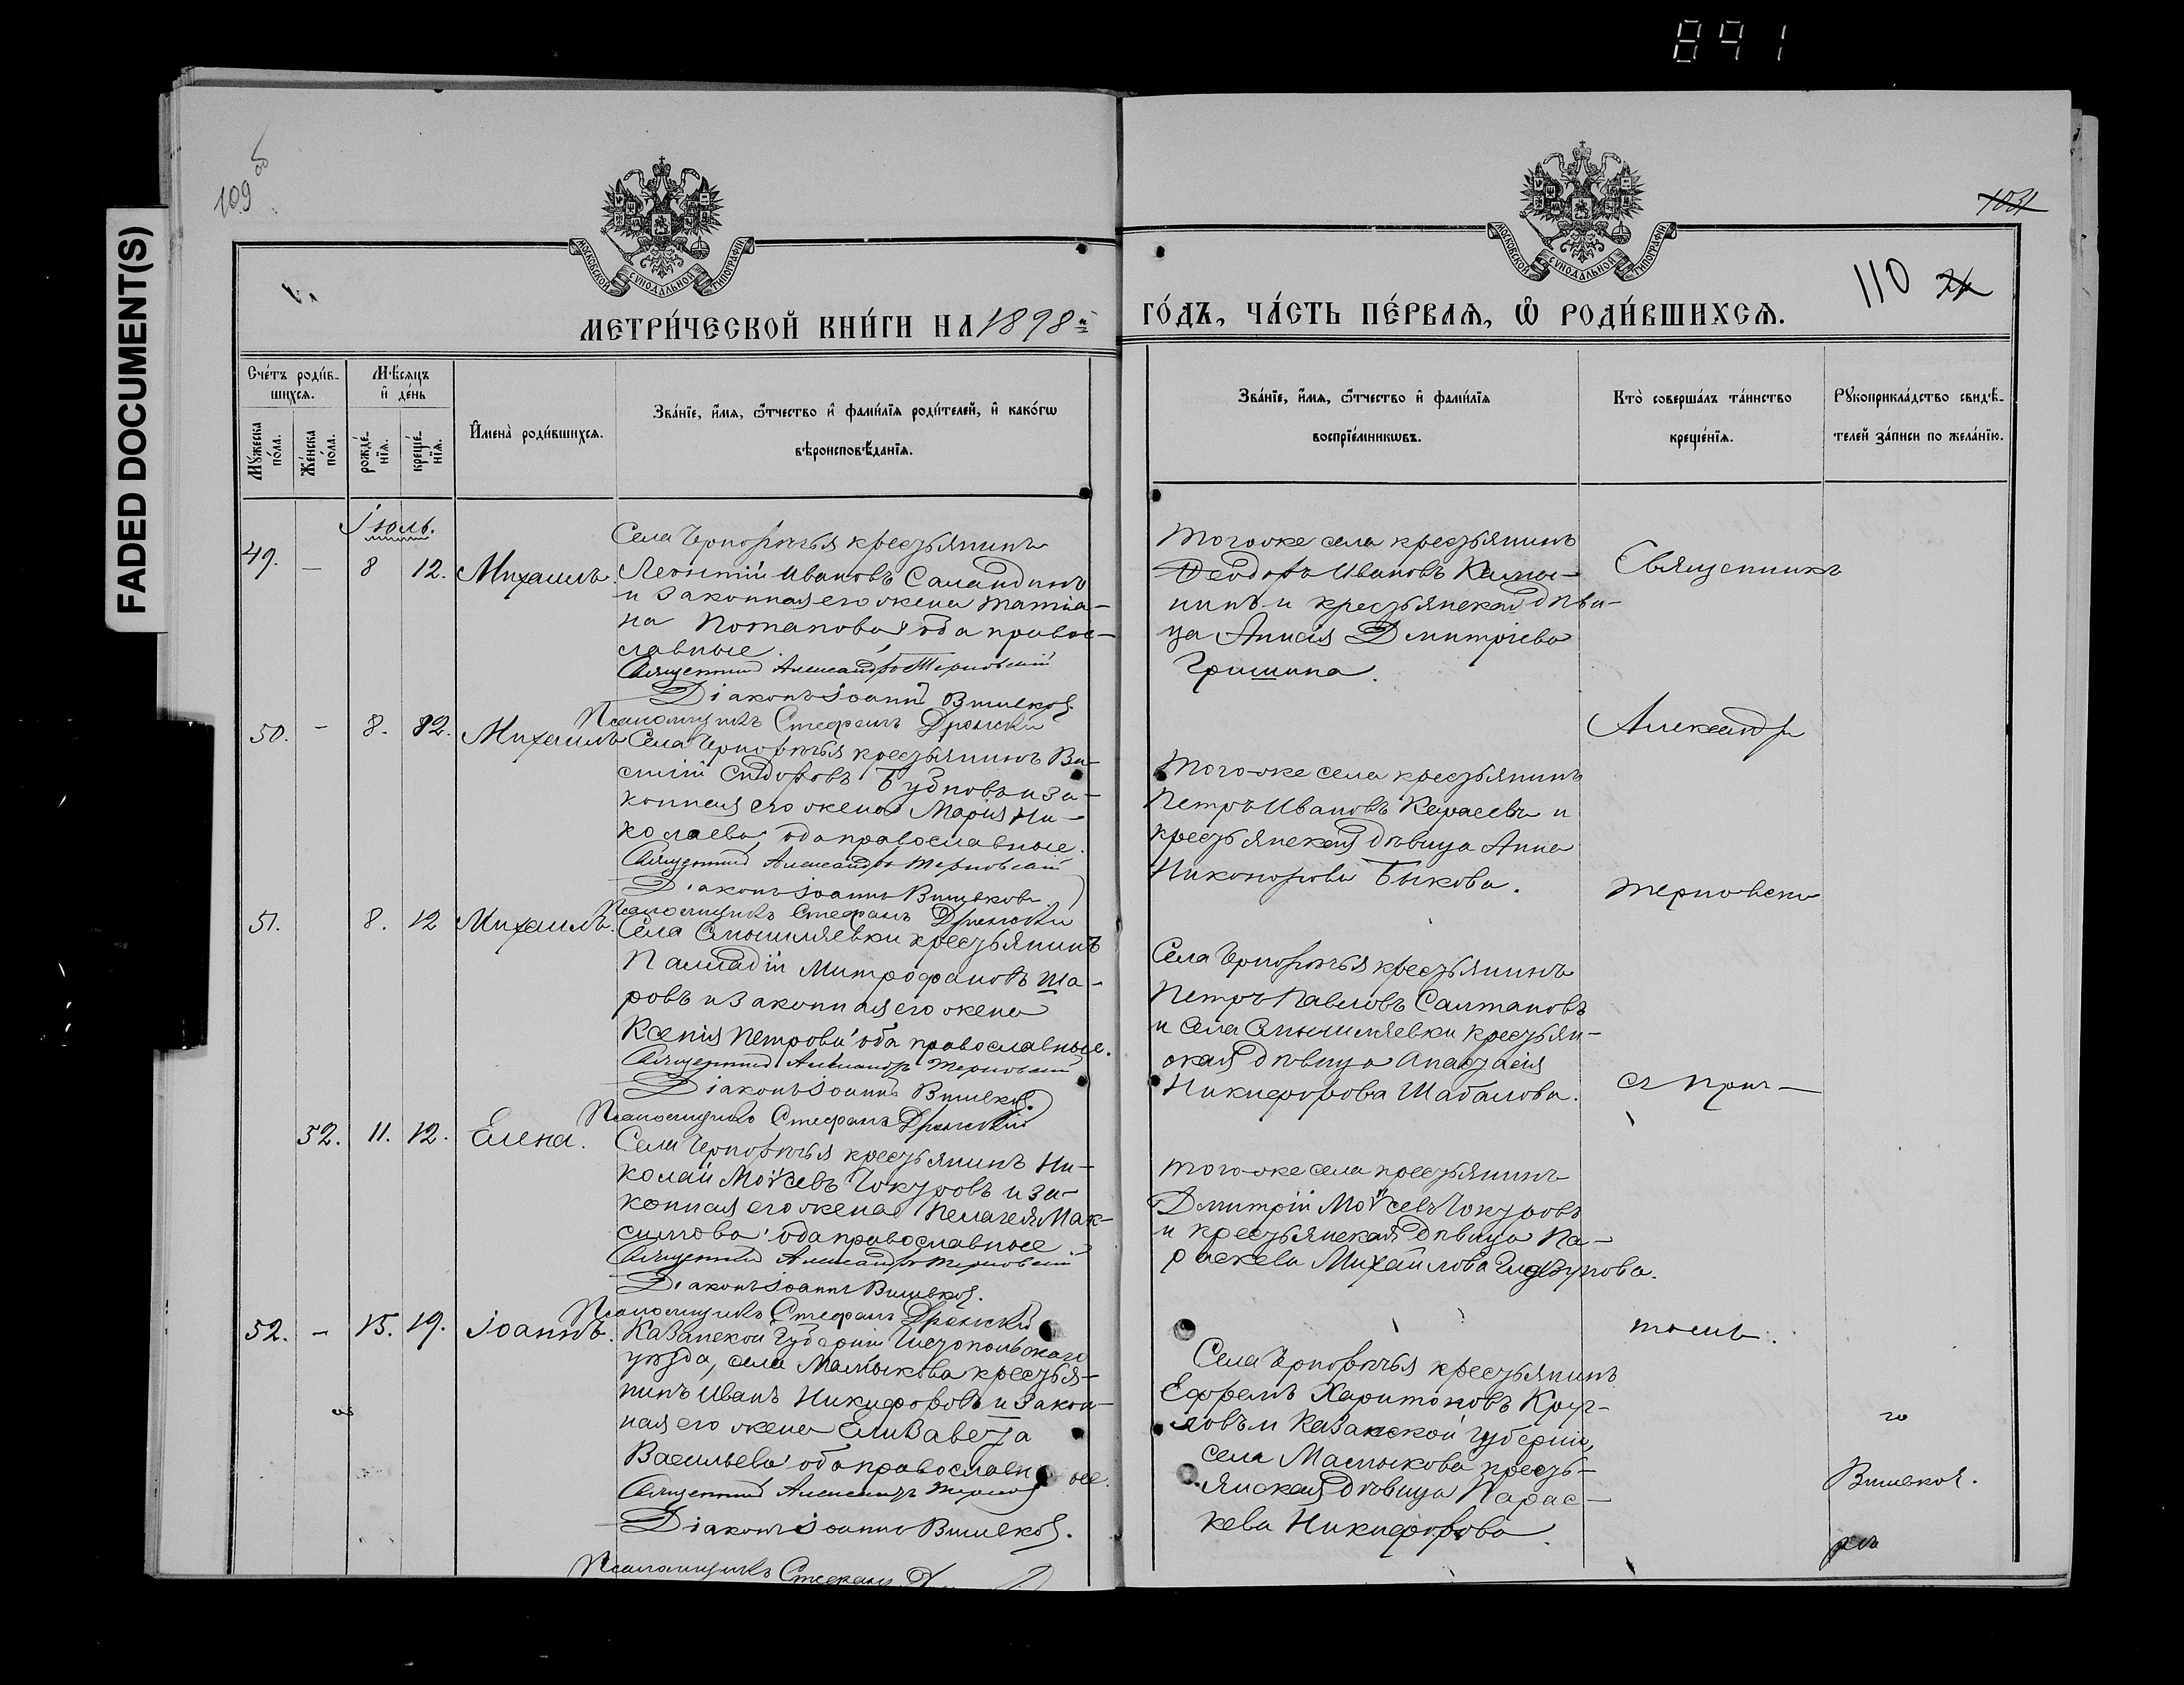 891
FADED DOCUMENT(S)
109 об
103
110
МОСКОВСКОЙ СѴНОДАЛЬНОЙ ТИПОГРАФІИ
МОСКОВСКОЙ СѴНОДАЛЬНОЙ ТИПОГРАФІИ
МЕТРИ́ЧЕСКОЙ КНИ́ГИ НА 1898 й
ГО́ДЪ, ЧА́СТЬ ПЕ́РВАѦ, Ѡ҆ РОДИ́ВШИХСѦ.
Сче́тъ роди́в-
шихсѧ.
Му́жеска по́ла.
Же́нска по́ла.
Мѣ́сѧцъ
и҆ де́нь
рожде́-
нїѧ.
креще́-
нїѧ.
И҆мена̀ роди́вшихсѧ.
Зва́нїе, и҆́мѧ, ѻ҆́тчество и҆ фамѝлїѧ роди́телей, и҆ како́гѡ
вѣроисповѣ́данїѧ.
Зва́нїе, и҆́мѧ, ѻ҆́тчество и҆ фамѝлїѧ
воспрїе́мникѡвъ.
Кто̀ соверша́лъ та́инство
креще́нїѧ.
Рꙋкоприкла́дство свидѣ́-
телей за́писи по жела́нїю.
Іюль.
49. – 8 12. Михаилъ.
Села Чернорѣчья крестьянинъ
Леонтій Ивановъ Саландинъ
и законная его жена Татіа-
на Потапова оба правос-
лавные.
Священникъ Александръ Терновскій
Діаконъ Іоаннъ Вишевков
Псаломщикъ Стефанъ
Тогоже села крестьянинъ
Ѳеодоръ Ивановъ
нинъ и крестьянская дѣви-
ца Анисія Дмитріева
Гришина.
Священникъ
50. – 8. 12. Михаилъ
Села Чернорѣчья крестьянинъ Ва-
силій Сидоровъ Бубновъ и за-
конная его жена Марія Ни-
колаева, оба православные.
Священникъ Александръ Терновскій
Діаконъ Іоаннъ
Псаломщикъ Стефанъ
Александръ
Тогоже села крестьянинъ
Петръ Ивановъ и
крестьянская дѣвица Анна
Никонорова Быкова.
Терновскій
51. 8. 12 Михаилъ.
Села Смышляевки крестьянинъ
Палладій Митрофановъ Ша-
ровъ и законная его жена
Ксенія Петрова оба православные.
Священникъ Александръ Терновскій
Діаконъ Іоаннъ
Псаломщикъ Стефанъ
Села Чернорѣчья крестьянинъ
Петръ Павловъ Салтановъ
и села Смышляевки крестьян-
ская дѣвица Анастасія
Никифорова Шабалова.
съ прич-
52. 11. 12. Елена.
Села Чернорѣчья крестьянинъ Ни-
колай Моѵсеевъ Чокуровъ и за-
конная его жена Пелагея Мак-
симова оба православные
Священникъ Александръ Терновскій
Діаконъ Іоаннъ
Псаломщикъ Стефанъ
Тогоже села крестьянинъ
Дмитрій Моѵсеевъ Чокуровъ
и крестьянская дѣвица Па-
раскева Михайлова
томъ.
52. – 15. 19. Іоаннъ.
Казанской Губерніи Чистопольскаго
уѣзда, села Мамыкова крестья-
нинъ Иванъ Никифоровъ и закон-
ная его жена Елизавета
Васильева оба православные.
Священникъ Александръ
Діаконъ Іоаннъ
Псаломщикъ Стефанъ
Села Чернорѣчья крестьянинъ
Ефремъ Харитоновъ Круг-
ловъ и Казанской губерніи,
села Мамыкова кресть-
янская дѣвица Парас-
кева Никифорова.